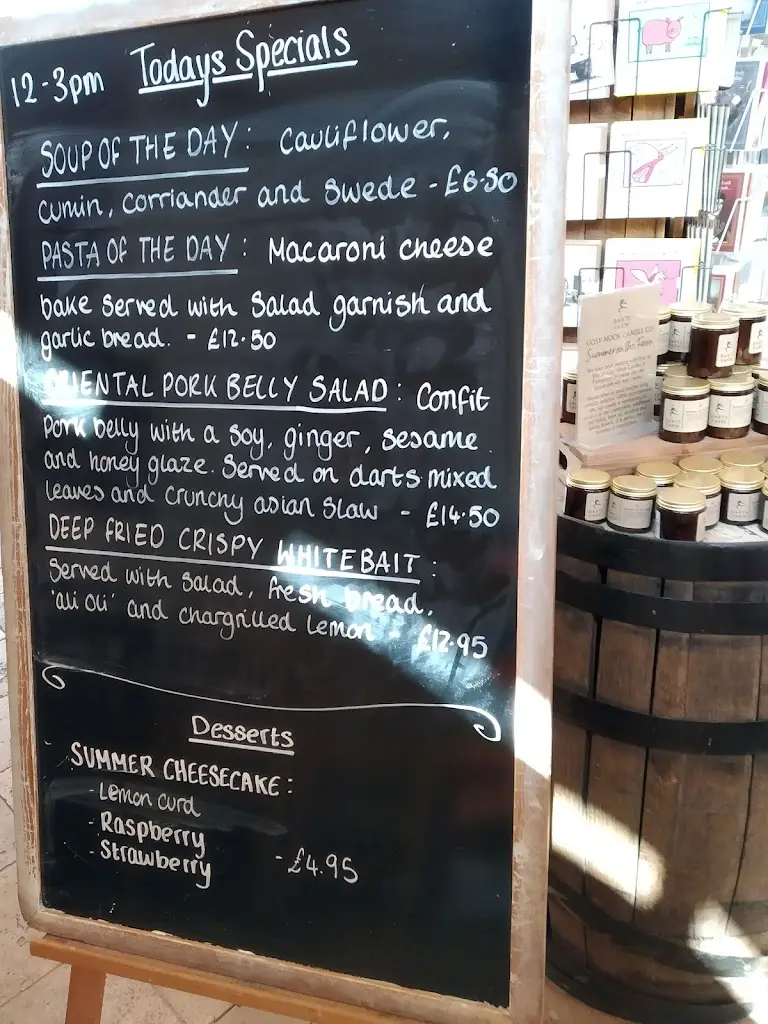 12-3pm Todays Specials
SOUP OF THE DAY: Cauliflower,
cumin, corriander and swede - £6.50
PASTA OF THE DAY: Macaroni cheese
bake served with salad garnish and
garlic bread. - £12.50
ORIENTAL PORK BELLY SALAD: Confit
pork belly with a soy, ginger, sesame
and honey glaze. Served on darts mixed
leaves and crunchy asian slaw - £14.50
DEEP FRIED CRISPY WHITEBAIT:
Served with salad, fresh bread,
'ali oli' and chargrilled lemon - £12.95
Desserts
SUMMER CHEESECAKE:
- Lemon curd
- Raspberry
- Strawberry - £4.95
DARTS
FARM
COSY NOOK CANDLE CO
Summer on the Farm